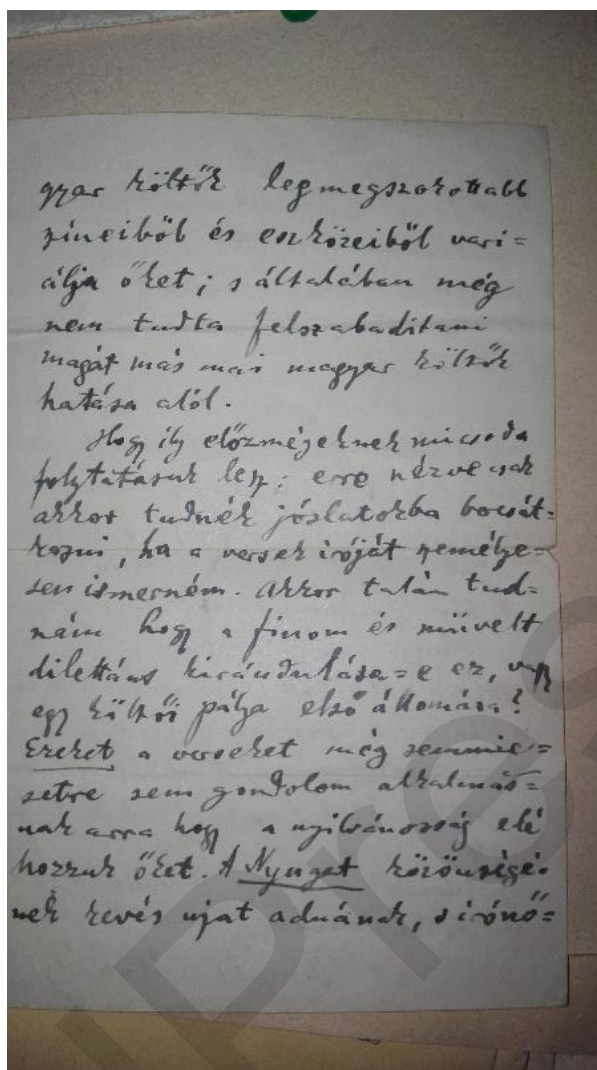 gyar költők legmegszokottabb
színeiből és eszközeiből vari=
álja őket; s általában még
nem tudta felszabadítani
magát más mai magyar költők
hatása alól.
Hogy ily előzményeknek micsoda
folytatásuk lesz: erre nézve csak
akkor tudnék jóslatokba bocsát=
kozni, ha a versek íróját szemé­lye=
sen ismerném. Akkor talán tud=
nám hogy a finom és művelt
dilettáns kirándulása=e ez, vagy
egy költői pálya első állomása?
Ezeket a verseket még semmie=
setre sem gondolom alkalmas=
nak arra hogy a nyilvánosság elé
hozzuk őket. A Nyugat közönségé=
nek kevés ujat adnának, s írónő=